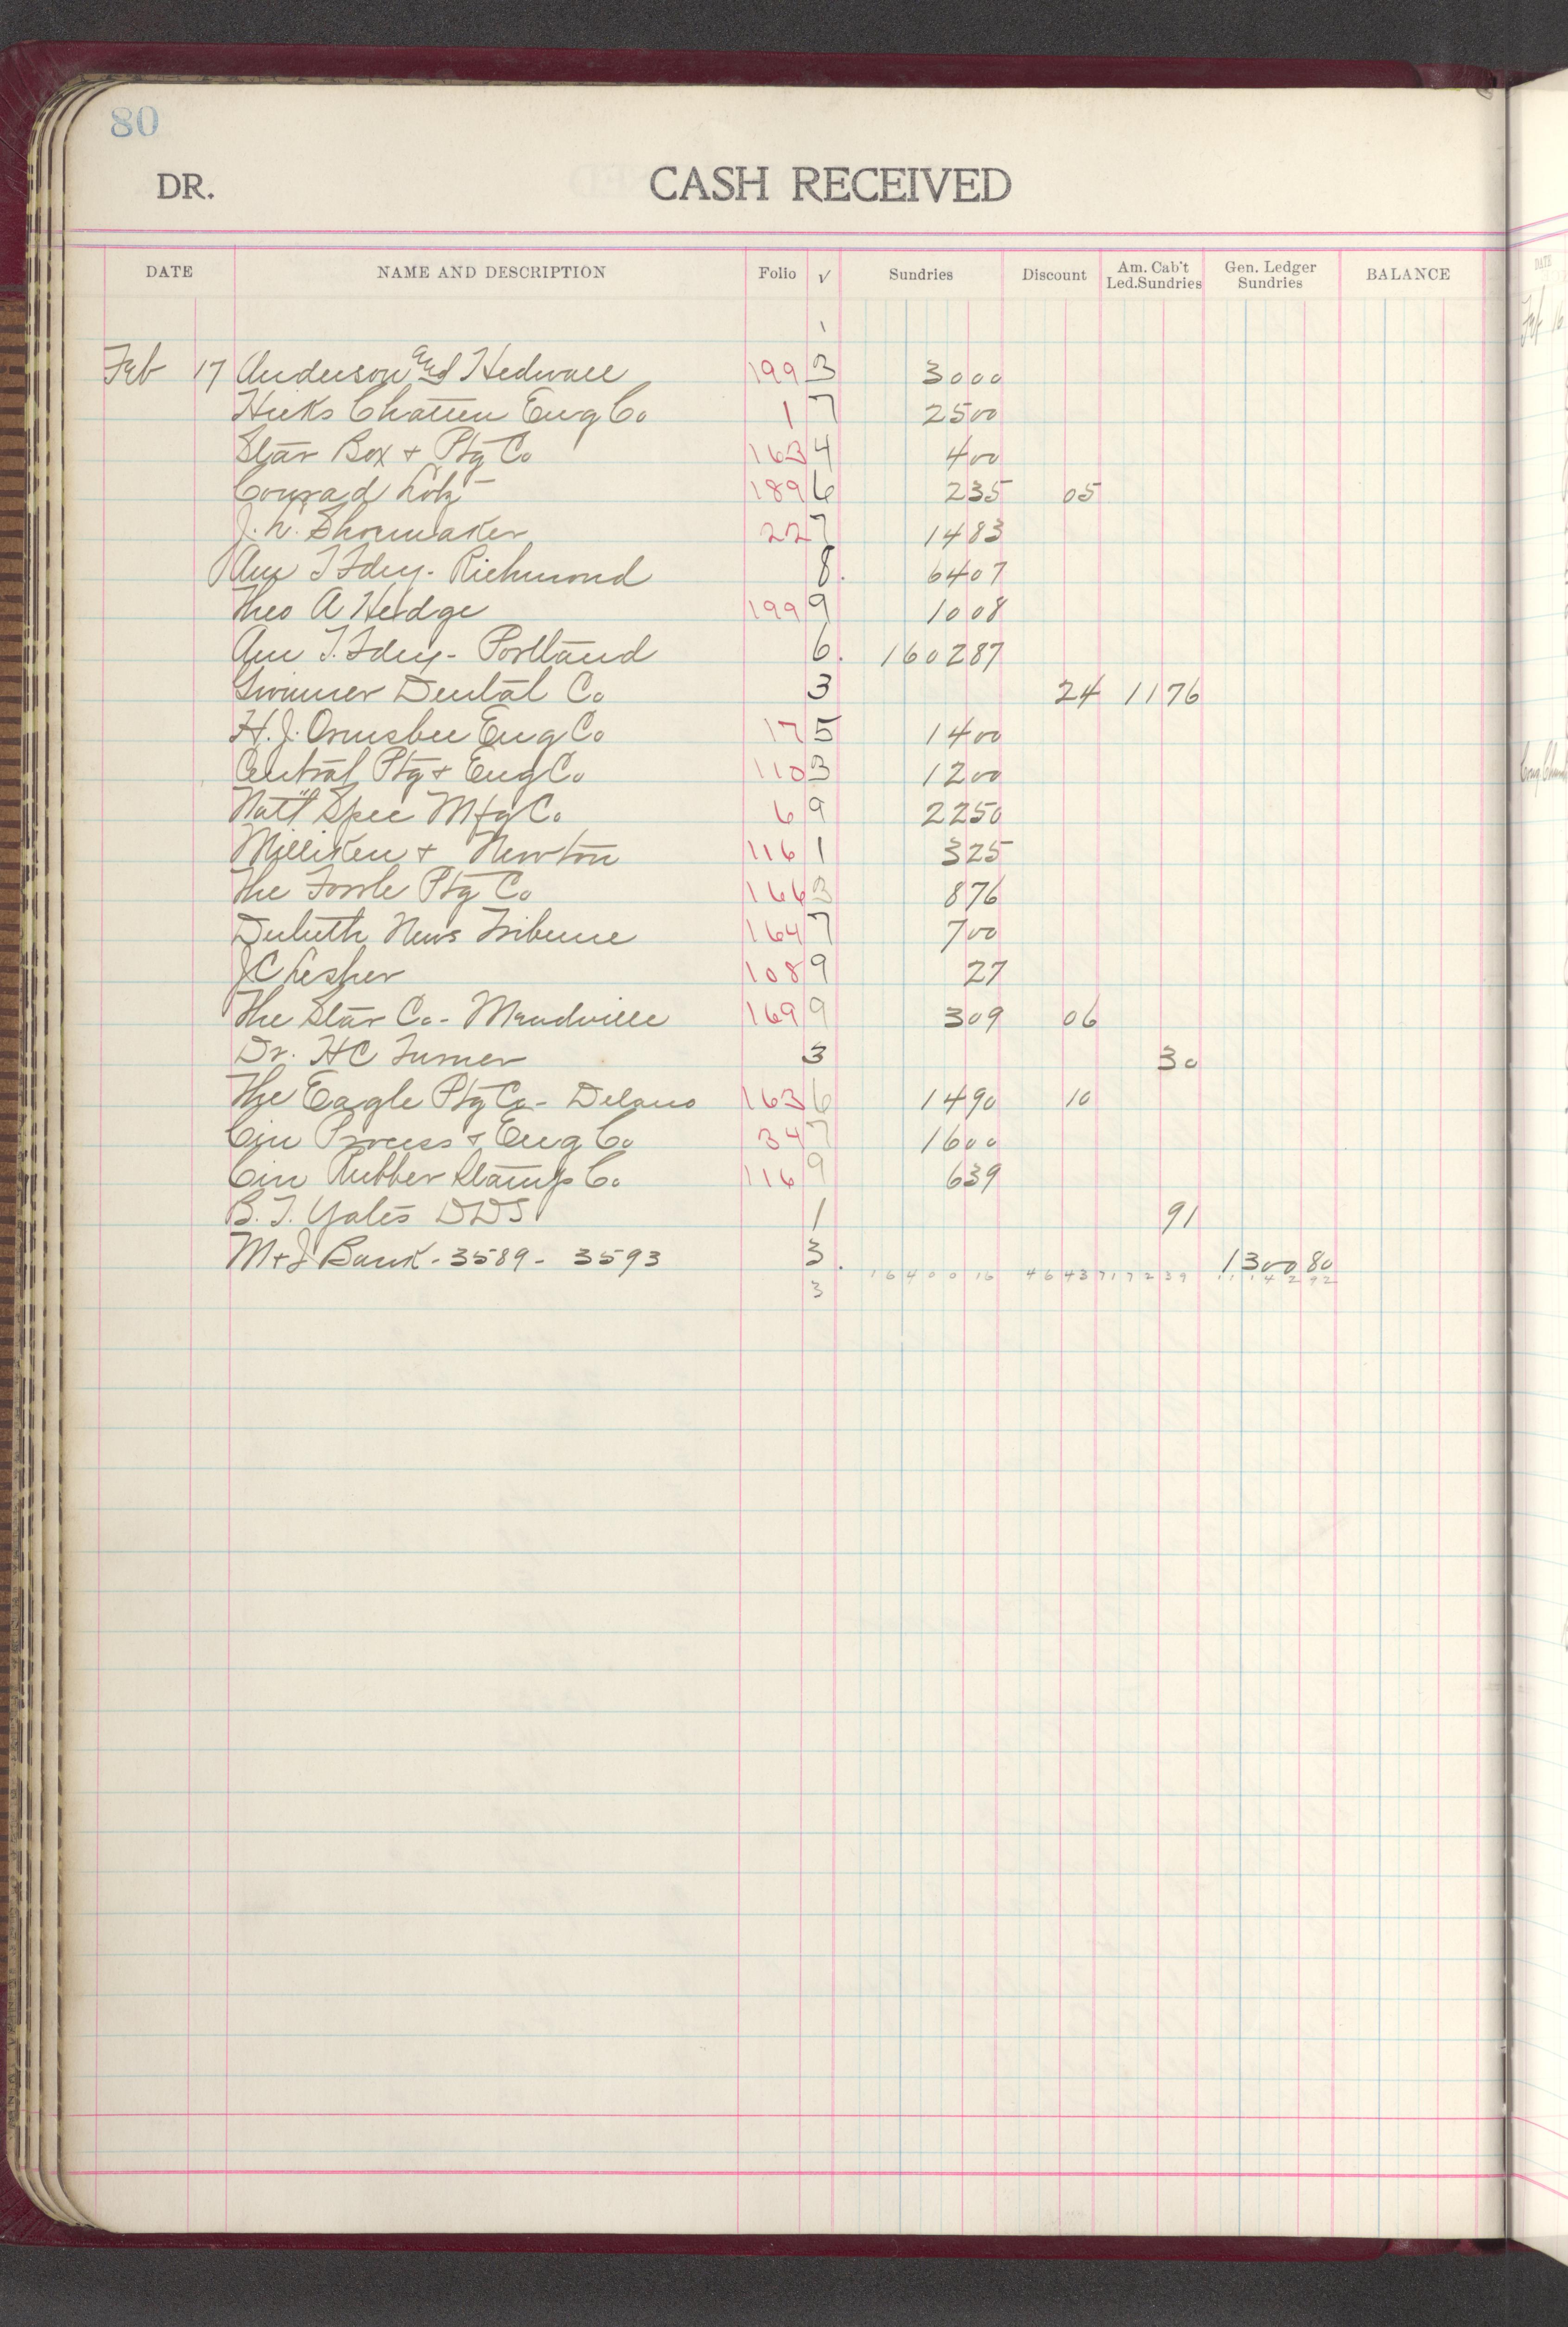 80
DR. CASH RECEIVED
DATE NAME AND DESCRIPTION Folio √ Sundries Discount Am. Cab't Led. Sundries Gen. Ledger Sundries BALANCE
Feb 17 Anderson and Hedwall 199 3 30 00
Hicks Chatten Eng Co 1 7 25 00
Star Box + Ptg Co 163 4 4 00
Conrad Lotz 189 6 2 35 05
J. N. Shoemaker 22 7 14 83
Am T Fdry - Richmond 8. 64 07
Theo A Hedge 199 9 10 08
Am T. Fdry - Portland 6. 1602 87
Dental Co 3 24 11 76
H. J. Ormsbee Eng Co 17 5 14 00
Central Ptg + Eng Co 110 3 12 00
Nat'l Spec Mfg Co 6 9 22 50
Milliken + Newton 116 1 3 25
The Ptg Co 166 3 8 76
Duluth News Tribune 164 7 7 00
J C Lesher 108 9 27
The Star Co - 169 9 3 09 06
Dr. H C Turner 3 30
The Eagle Ptg Co - Delano 163 6 14 90 10
Cin Process + Eng Co 34 7 16 00
Cin Rubber Stamp Co. 116 9 6 39
B. T. Yates DDS 1 91
M + J Bank - 3589 - 3593 3. 1300 80
3 16400 16 46 43 7172 39 11142 92